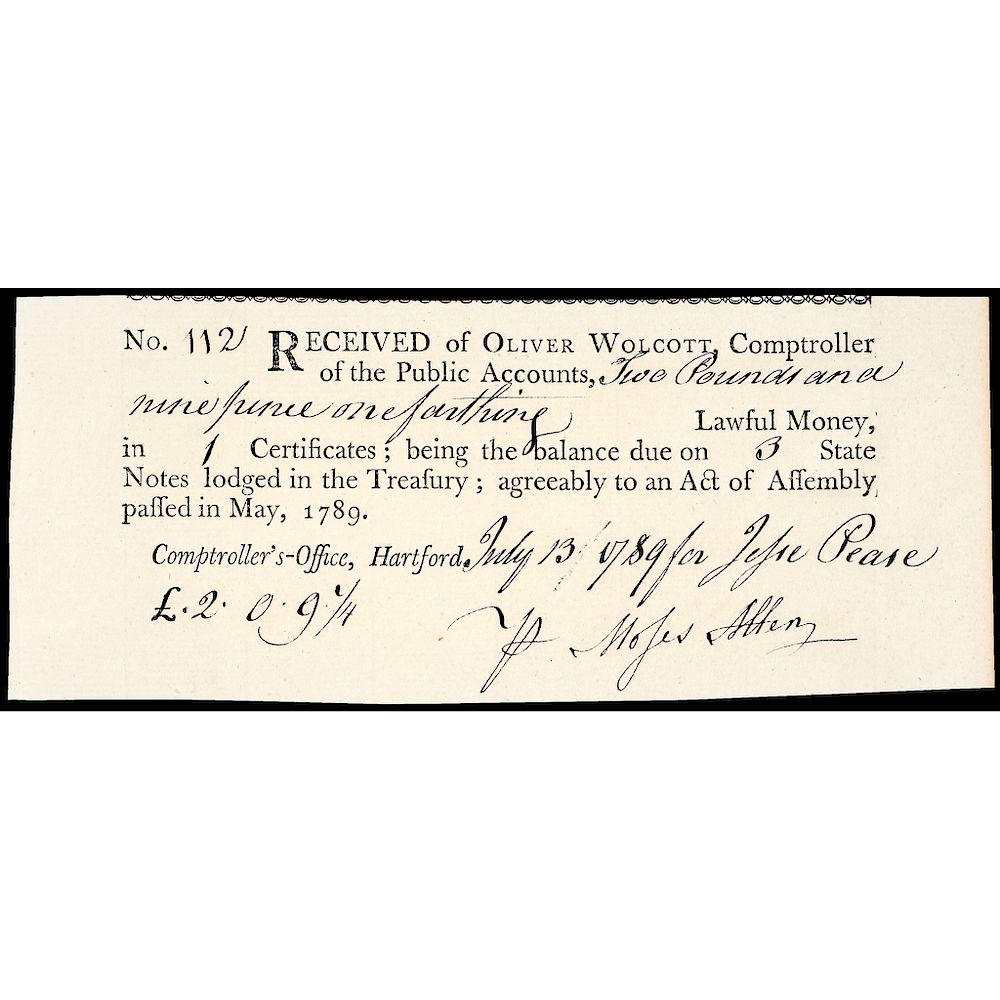 No. 112 RECEIVED of OLIVER WOLCOTT, Comptroller
of the Public Accounts, Two Pounds and
nine pence one farthing Lawful Money,
in 1 Certificates; being the balance due on 3 State
Notes lodged in the Treaſury; agreeably to an Act of Aſſembly
paſſed in May, 1789.
Comptroller's-Office, Hartford, July 13 1789 for Jeſse Pease
£. 2. 0. 9 1/4
⅌ Moſes Allen